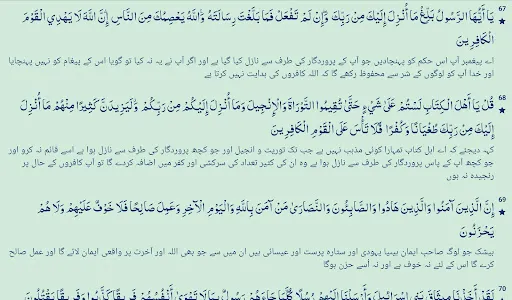 ۶۷ يَا أَيُّهَا الرَّسُولُ بَلِّغْ مَا أُنزِلَ إِلَيْكَ مِن رَّبِّكَ وَإِن لَّمْ تَفْعَلْ فَمَا بَلَّغْتَ رِسَالَتَهُ وَاللّهُ يَعْصِمُكَ مِنَ النَّاسِ إِنَّ اللّهَ لاَ يَهْدِي الْقَوْمَ
الْكَافِرِينَ
اے پیغمبر آپ اس حکم کو پہنچادیں جو آپ کے پروردگار کی طرف سے نازل کیا گیا ہے اور اگر آپ نے یہ نہ کیا تو گویا اس کے پیغام کو نہیں پہنچایا
اور خدا آپ کو لوگوں کے شر سے محفوظ رکھے گا کہ اللہ کافروں کی ہدایت نہیں کرتا ہے
۶۸ قُلْ يَا أَهْلَ الْكِتَابِ لَسْتُمْ عَلَى شَيْءٍ حَتَّىَ تُقِيمُواْ التَّوْرَاةَ وَالإِنجِيلَ وَمَا أُنزِلَ إِلَيْكُم مِّن رَّبِّكُمْ وَلَيَزِيدَنَّ كَثِيرًا مِّنْهُم مَّا أُنزِلَ
إِلَيْكَ مِن رَّبِّكَ طُغْيَانًا وَكُفْرًا فَلاَ تَأْسَ عَلَى الْقَوْمِ الْكَافِرِينَ
کہہ دیجئے کہ اے اہل کتاب تمہارا کوئی مذہب نہیں ہے جب تک توریت و انجیل اور جو کچھ پروردگار کی طرف سے نازل ہوا ہے اسے قائم نہ کرو اور
جو کچھ آپ کے پاس پروردگار کی طرف سے نازل ہوا ہے وہ ان کی کثیر تعداد کی سرکشی اور کفر میں اضافہ کردے گا تو آپ کافروں کے حال پر
رنجیدہ نہ ہوں
۶۹ إِنَّ الَّذِينَ آمَنُواْ وَالَّذِينَ هَادُواْ وَالصَّابِؤُونَ وَالنَّصَارَى مَنْ آمَنَ بِاللّهِ وَالْيَوْمِ الآخِرِ وعَمِلَ صَالِحًا فَلاَ خَوْفٌ عَلَيْهِمْ وَلاَ هُمْ
يَحْزَنُونَ
بیشک جو لوگ صاحب ایمان ہیں یا یہودی اور ستارہ پرست اور عیسائی ہیں ان میں سے جو بھی اللہ اور آخرت پر واقعی ایمان لائے گا اور عمل صالح
کرے گا اس کے لئے نہ خوف ہے اور نہ اُسے حزن ہوگا
۷۰ لَقَدْ أَخَذْنَا مِيثَاقَ بَنِي إِسْرَائِيلَ وَأَرْسَلْنَا إِلَيْهِمْ رُسُلاً كُلَّمَا جَاءهُمْ رَسُولٌ بِمَا لاَ تَهْوَى أَنْفُسُهُمْ فَرِيقًا كَذَّبُواْ وَفَرِيقًا يَقْتُلُونَ